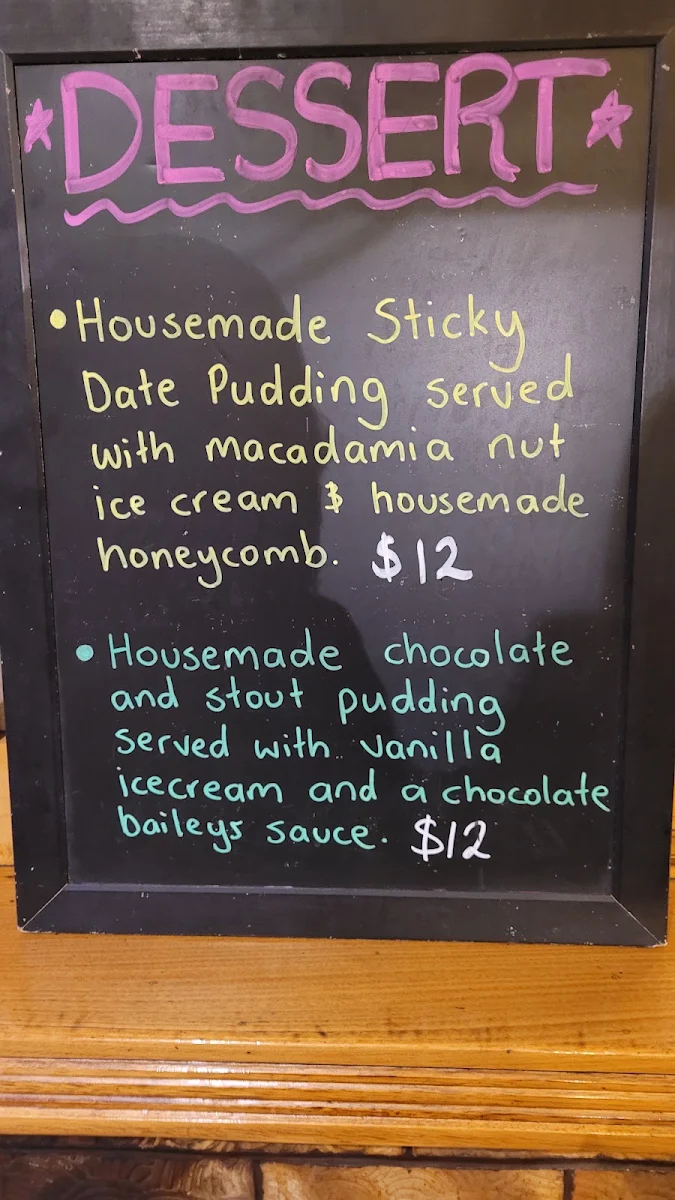 DESSERT
• Housemade Sticky
Date Pudding served
with macadamia nut
ice cream & housemade
honeycomb. $12
• Housemade chocolate
and stout pudding
served with vanilla
icecream and a chocolate
baileys sauce. $12